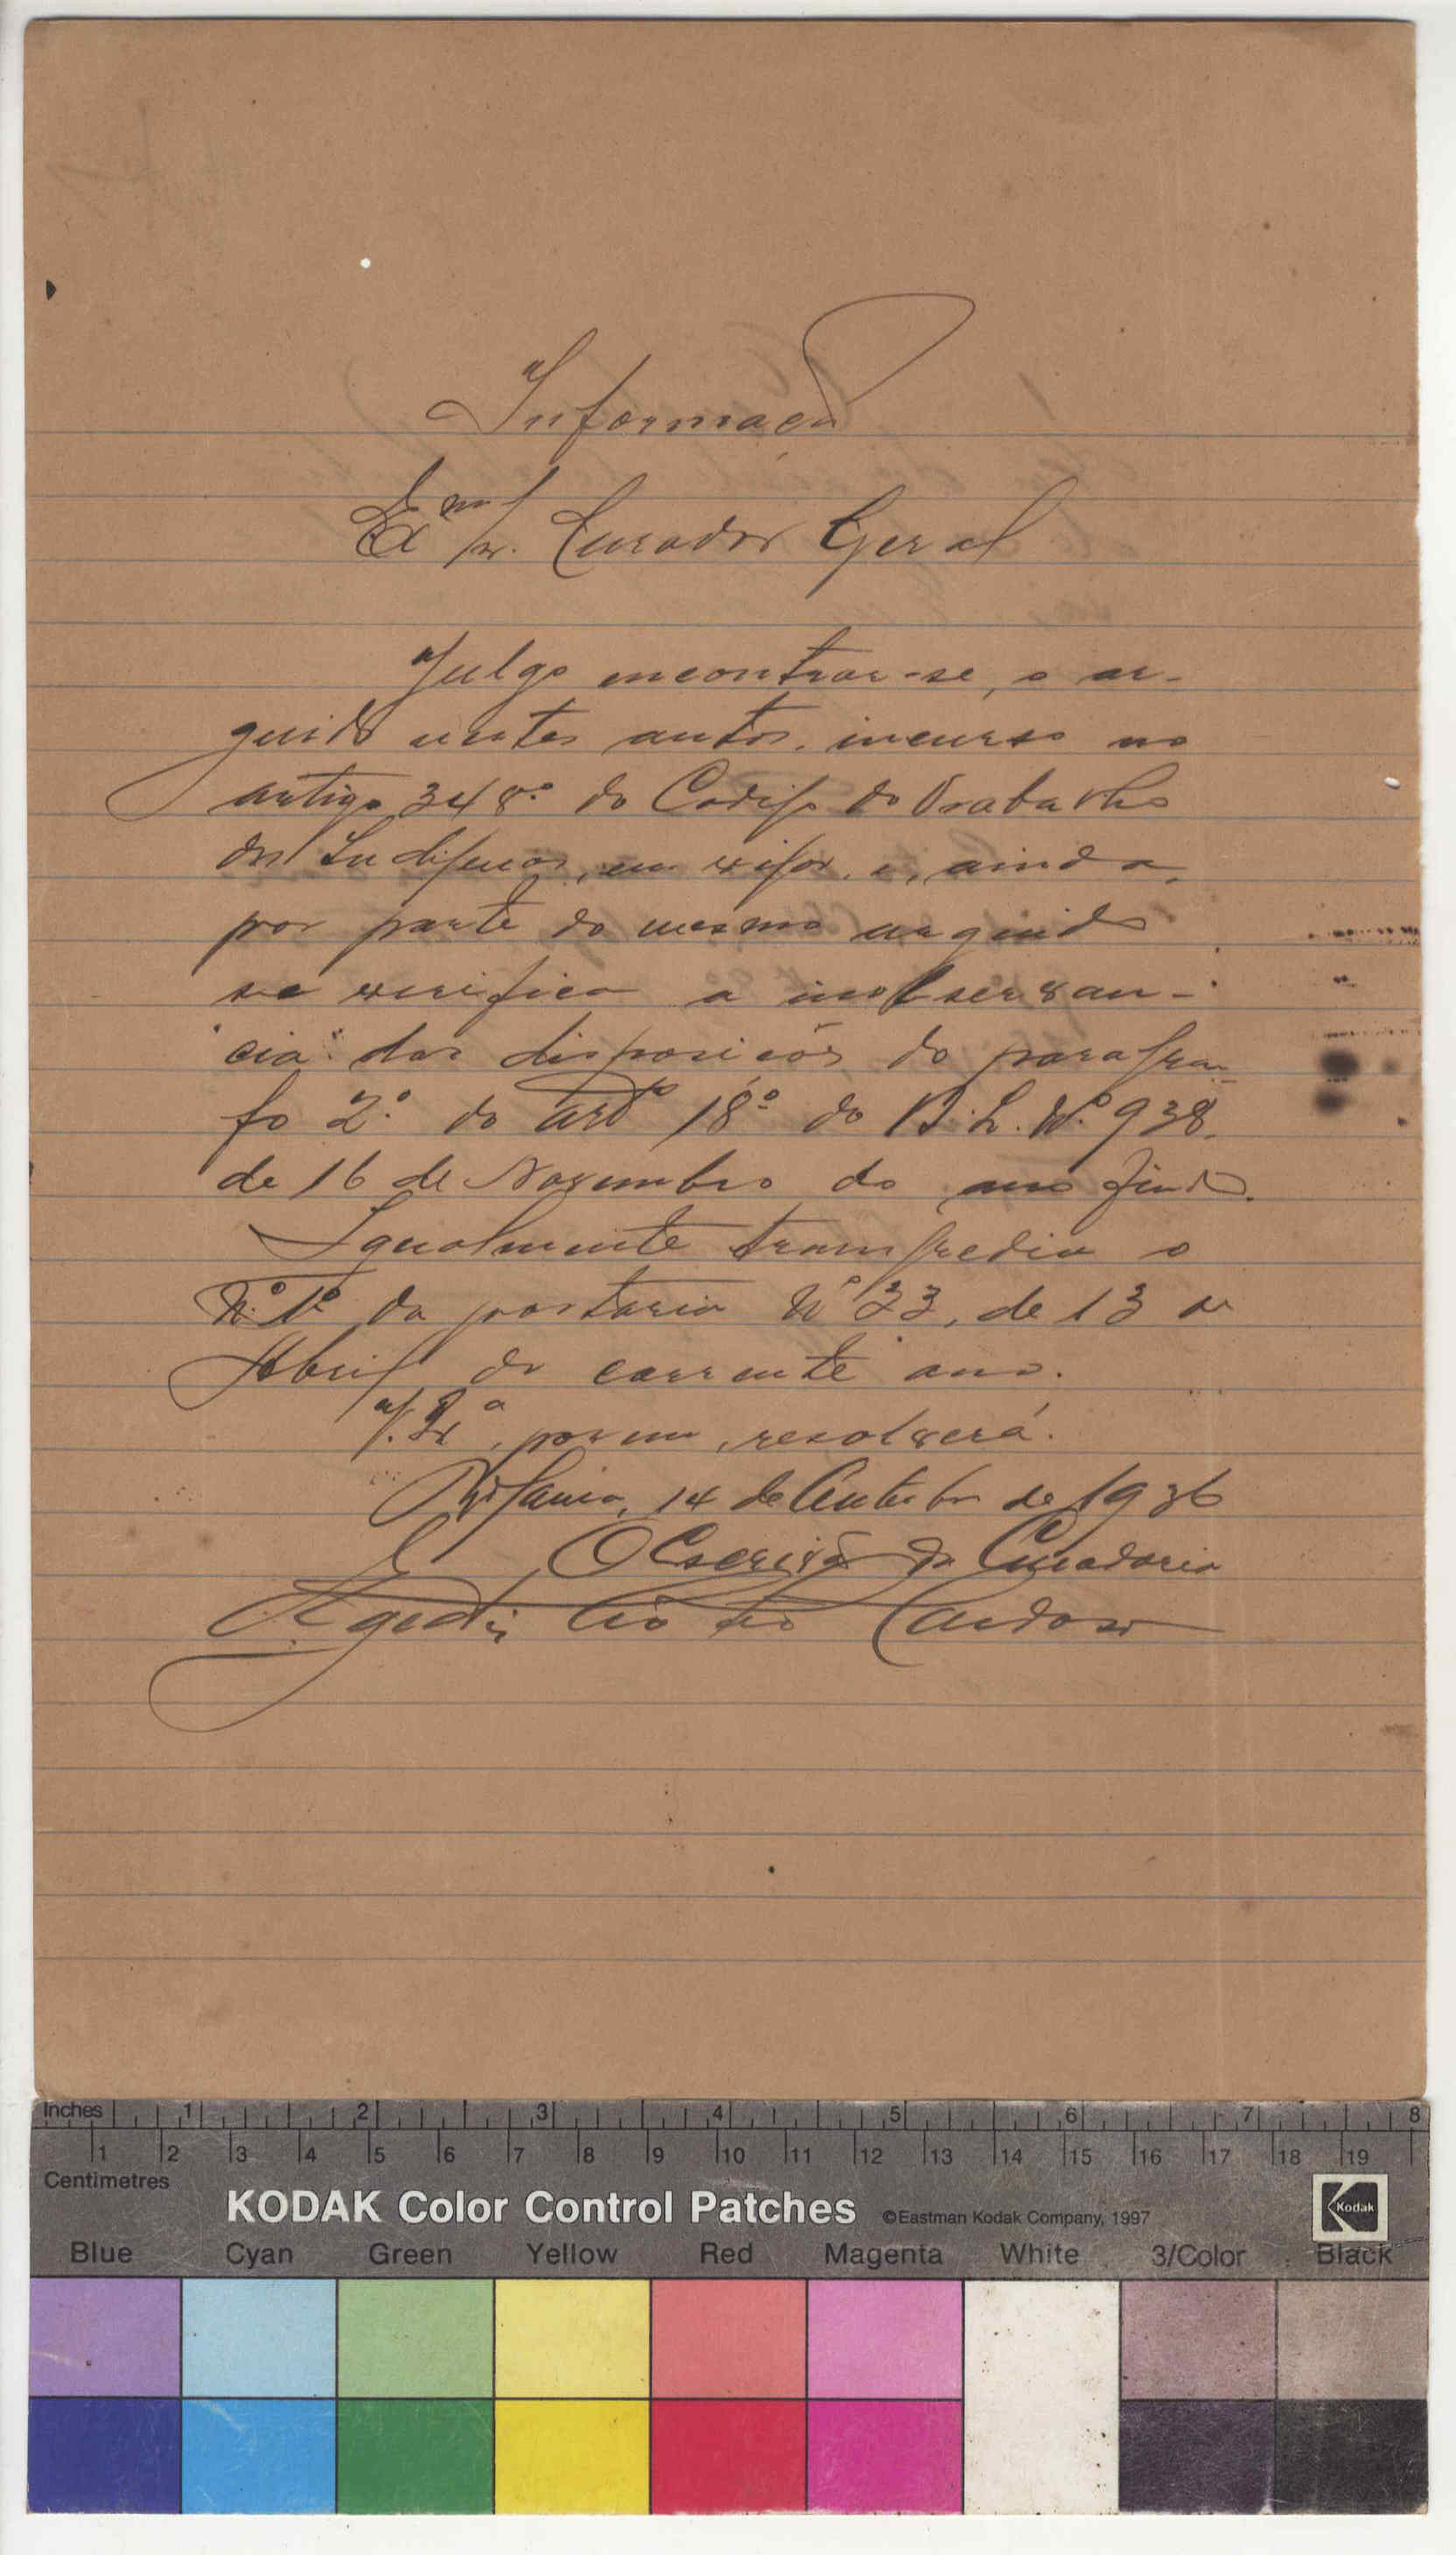 Informação
Exmº Sr. Curador Geral
Julgo encontrar-se, o ar-
guido nestes autos, incurso no
artigo 348º do Codigo do Trabalho
dos Indigenas, em vigor, e, ainda,
por parte do mesmo arguido
se verifica a inobservan-
cia das disposições do paragra-
fo 2º do artº 18º do B.L. Nº 938,
de 16 de Novembro do ano findo.
Igualmente transgrediu o
Nº 1º da portaria Nº 33, de 13 de
Abril do corrente ano.
V. Exª, porem, resolverá.
14 de Outubro de 1936
O Escrivão da Curadoria
Cardoso
Inches 1 2 3 4 5 6 7 8
1 2 3 4 5 6 7 8 9 10 11 12 13 14 15 16 17 18 19
Centimetres
KODAK Color Control Patches ©Eastman Kodak Company, 1997 Kodak
Blue Cyan Green Yellow Red Magenta White 3/Color Black